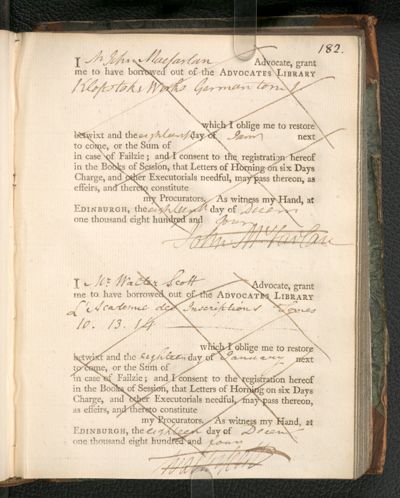 182.
I Mr John Macfarlan Advocate, grant
me to have borrowed out of the ADVOCATES LIBRARY
Klopstoks Works German tom
which I oblige me to restore
betwixt and the eighteenth day of next
to come, or the Sum of
in case of Failzie; and I consent to the registration hereof
in the Books of Session, that Letters of Horning on six Days
Charge, and other Executorials needful, may pass thereon, as
effeirs, and thereto constitute
my Procurators. As witness my Hand, at
EDINBURGH, the eighteenth day of Decem
one thousand eight hundred and four
John McFarlan
I Mr Walter Scott Advocate, grant
me to have borrowed out of the ADVOCATES LIBRARY
L'Academie des Inscriptions
10. 13. 14
which I oblige me to restore
betwixt and the eighteen day of January next
to come, or the Sum of
in case of Failzie; and I consent to the registration hereof
in the Books of Session, that Letters of Horning on six Days
Charge, and other Executorials needful, may pass thereon,
as effeirs, and thereto constitute
my Procurators. As witness my Hand, at
EDINBURGH, the eighteen day of Decem
one thousand eight hundred and four
Walter Scott